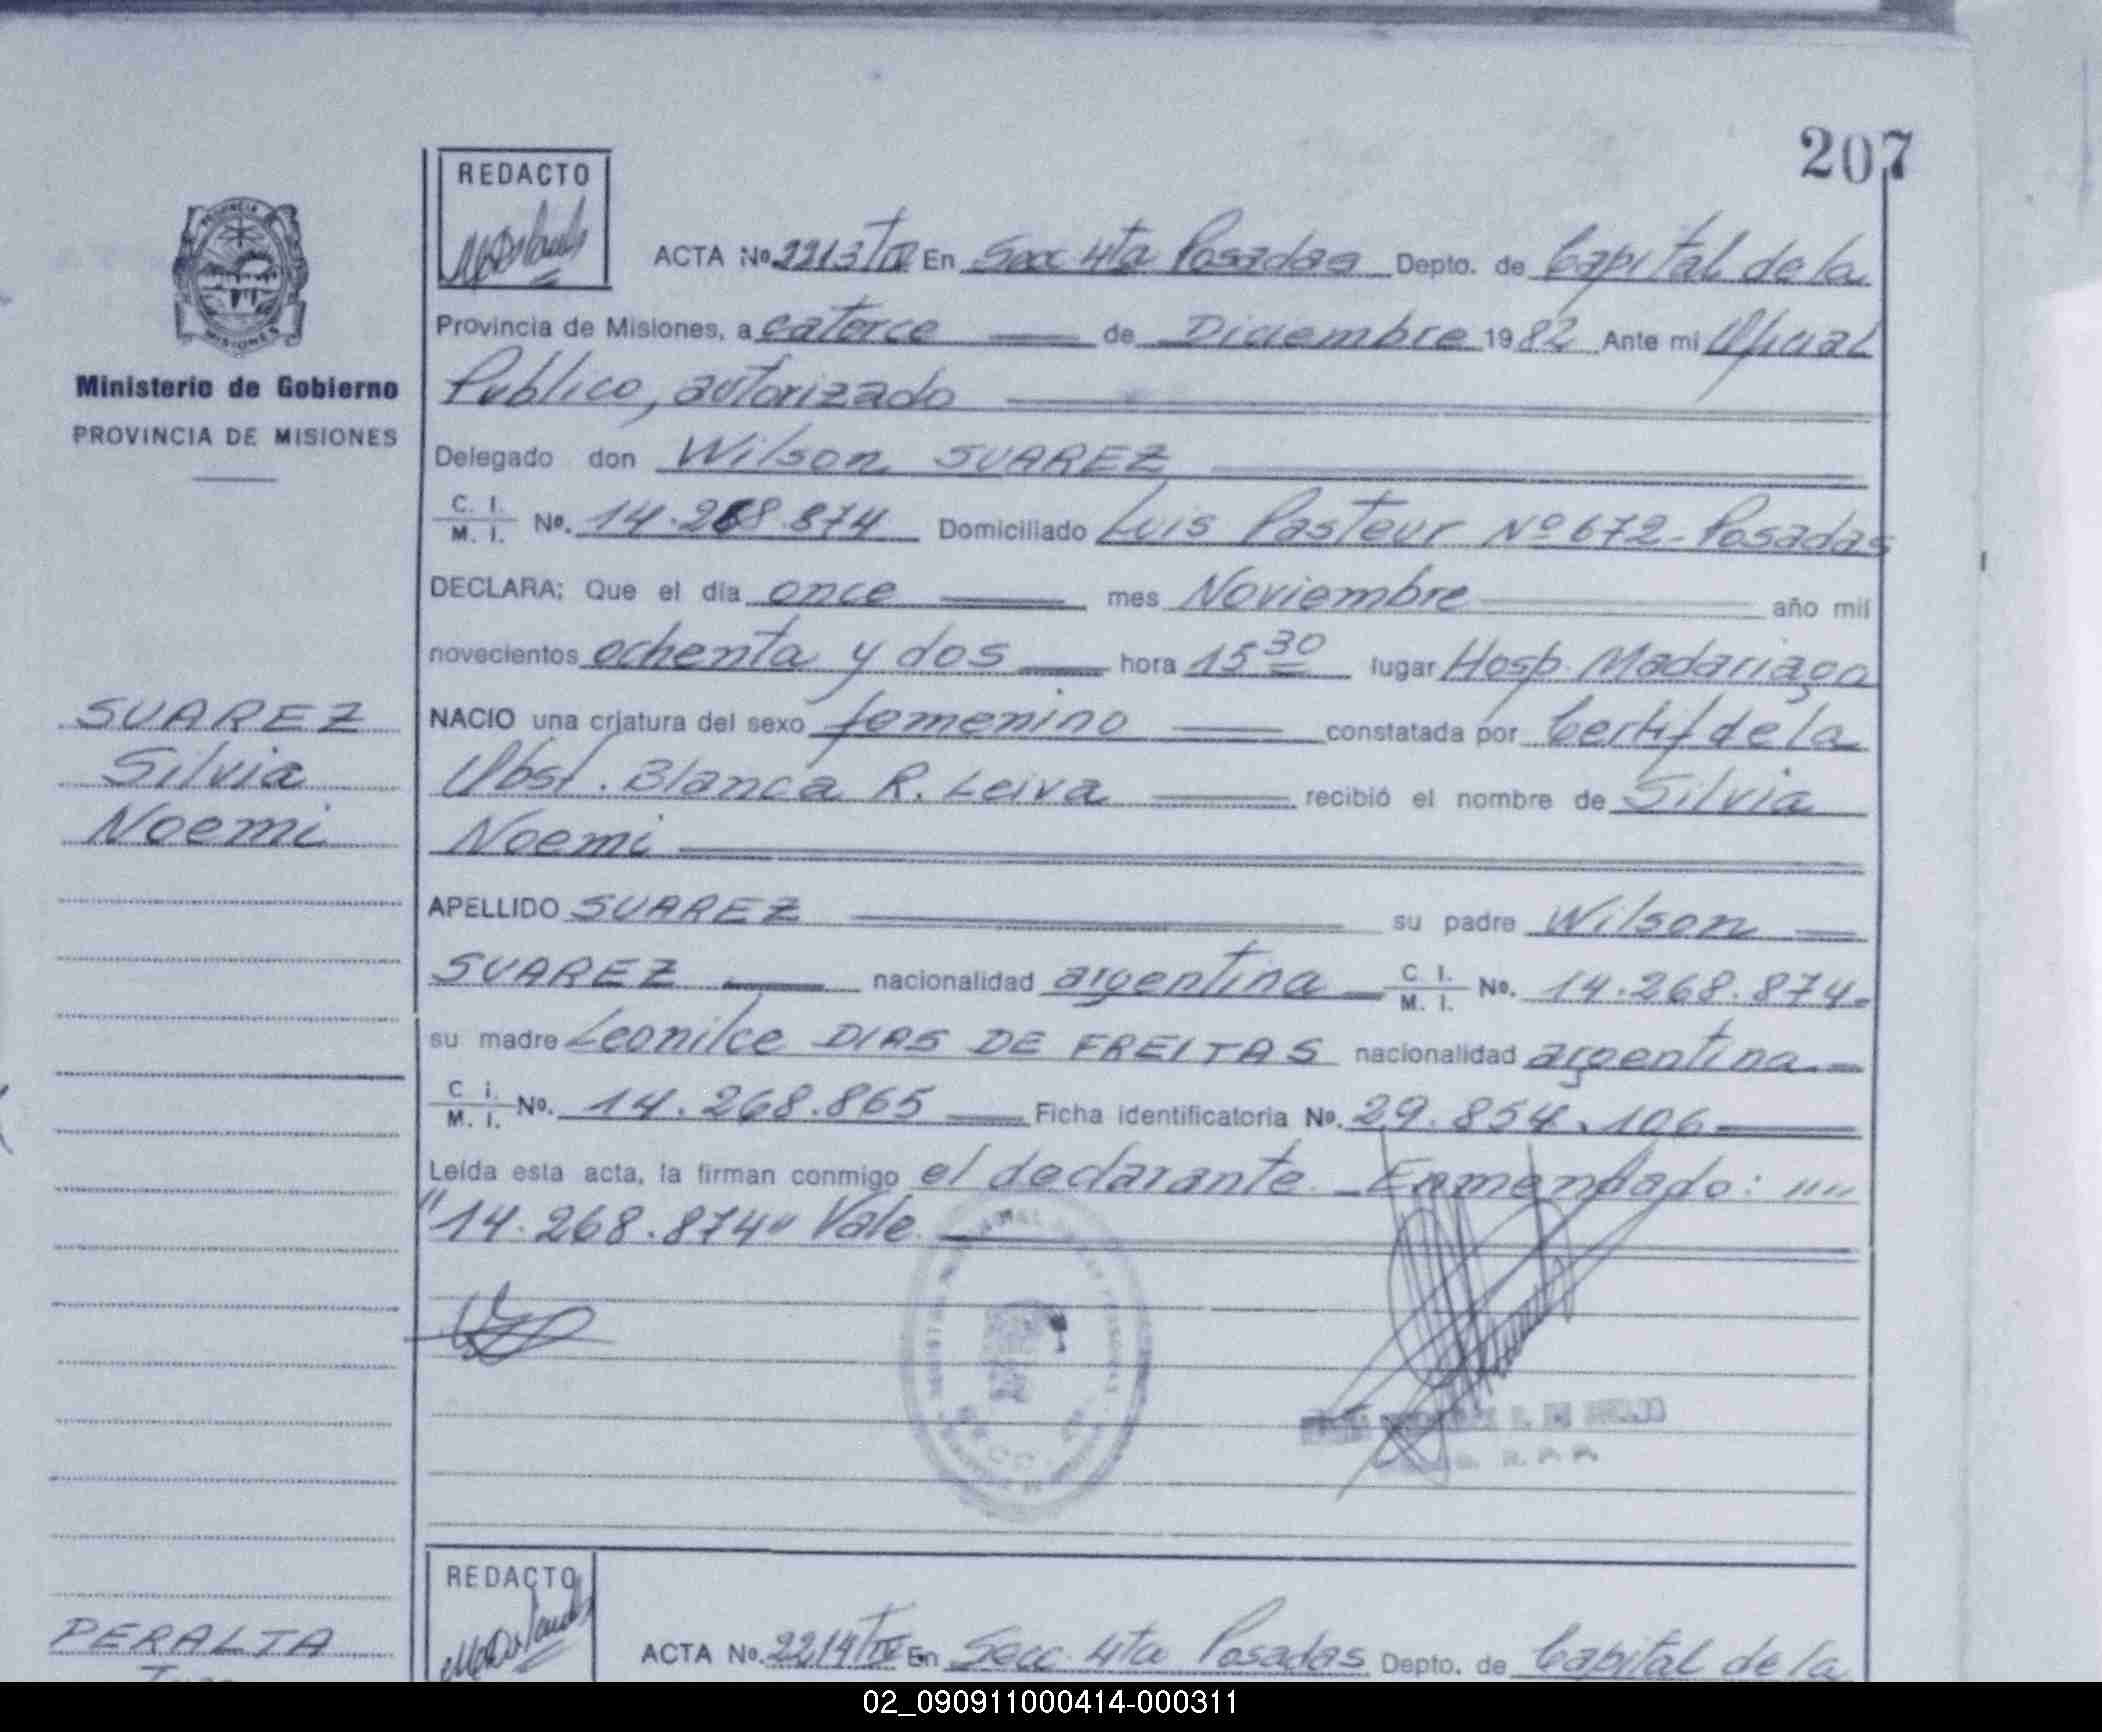 207
REDACTO
ACTA No. 2213/IV En Secc 4ta Posadas Depto. de Capital de la
Provincia de Misiones, a catorce de Diciembre 1982 Ante mi Oficial
Publico, autorizado
PROVINCIA
MISIONES
Ministerio de Gobierno
PROVINCIA DE MISIONES
Delegado don Wilson SUAREZ
C. I.
M. I. No. 14.268.874 Domiciliado Luis Pasteur Nº 672 - Posadas
DECLARA: Que el día once mes Noviembre año mil
novecientos ochenta y dos hora 15 30 lugar Hosp. Madariaga
NACIO una criatura del sexo femenino constatada por Certif de la
Obst. Blanca R. Leiva recibió el nombre de Silvia
Noemi
SUAREZ
Silvia
Noemi
APELLIDO SUAREZ su padre Wilson
SUAREZ nacionalidad argentina C. I. M. I. No. 14.268.874-
su madre Leonilce DIAS DE FREITAS nacionalidad argentina
C. i. M. i. No. 14.268.865 Ficha identificatoria No. 29.854.106
Leída esta acta, la firman conmigo el declarante. - Enmendado: """
"14.268.874" Vale
REDACTO
ACTA No. 2214/IV En Secc. 4ta Posadas Depto. de Capital de la
PERALTA
02_090911000414-000311